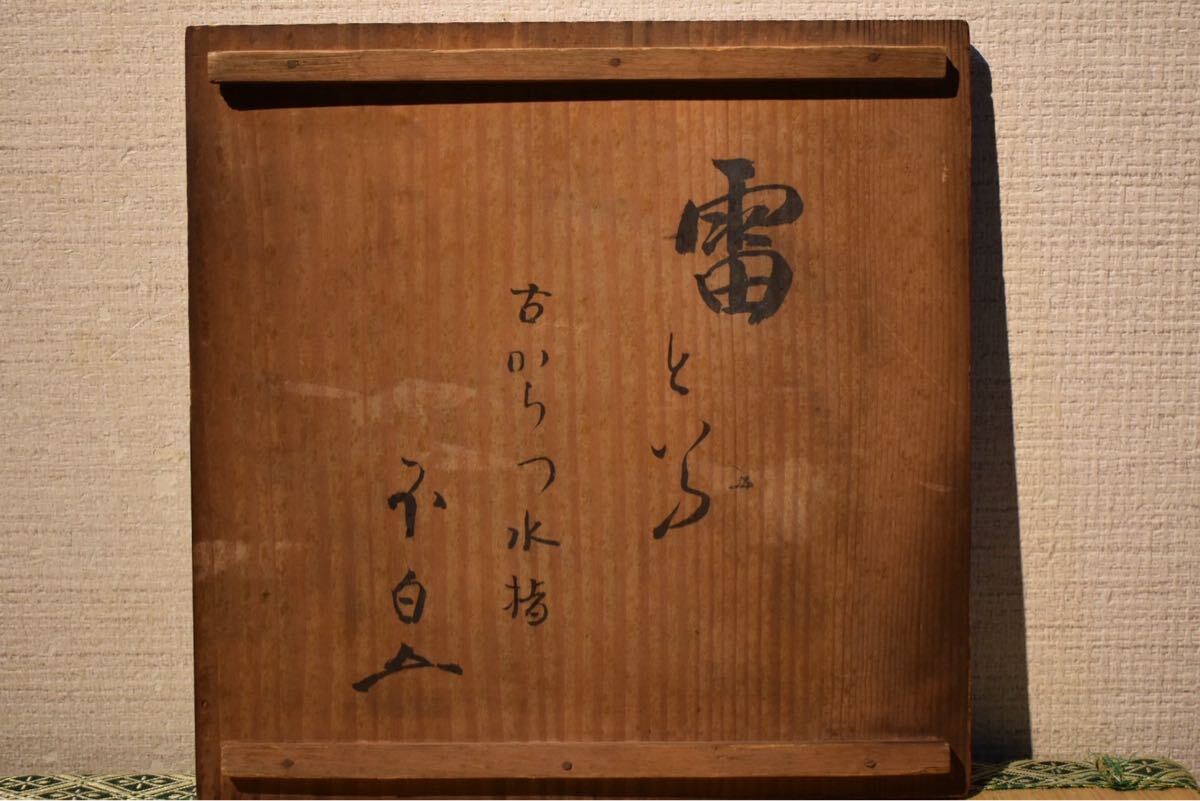 雷と号
古からつ水指
不白